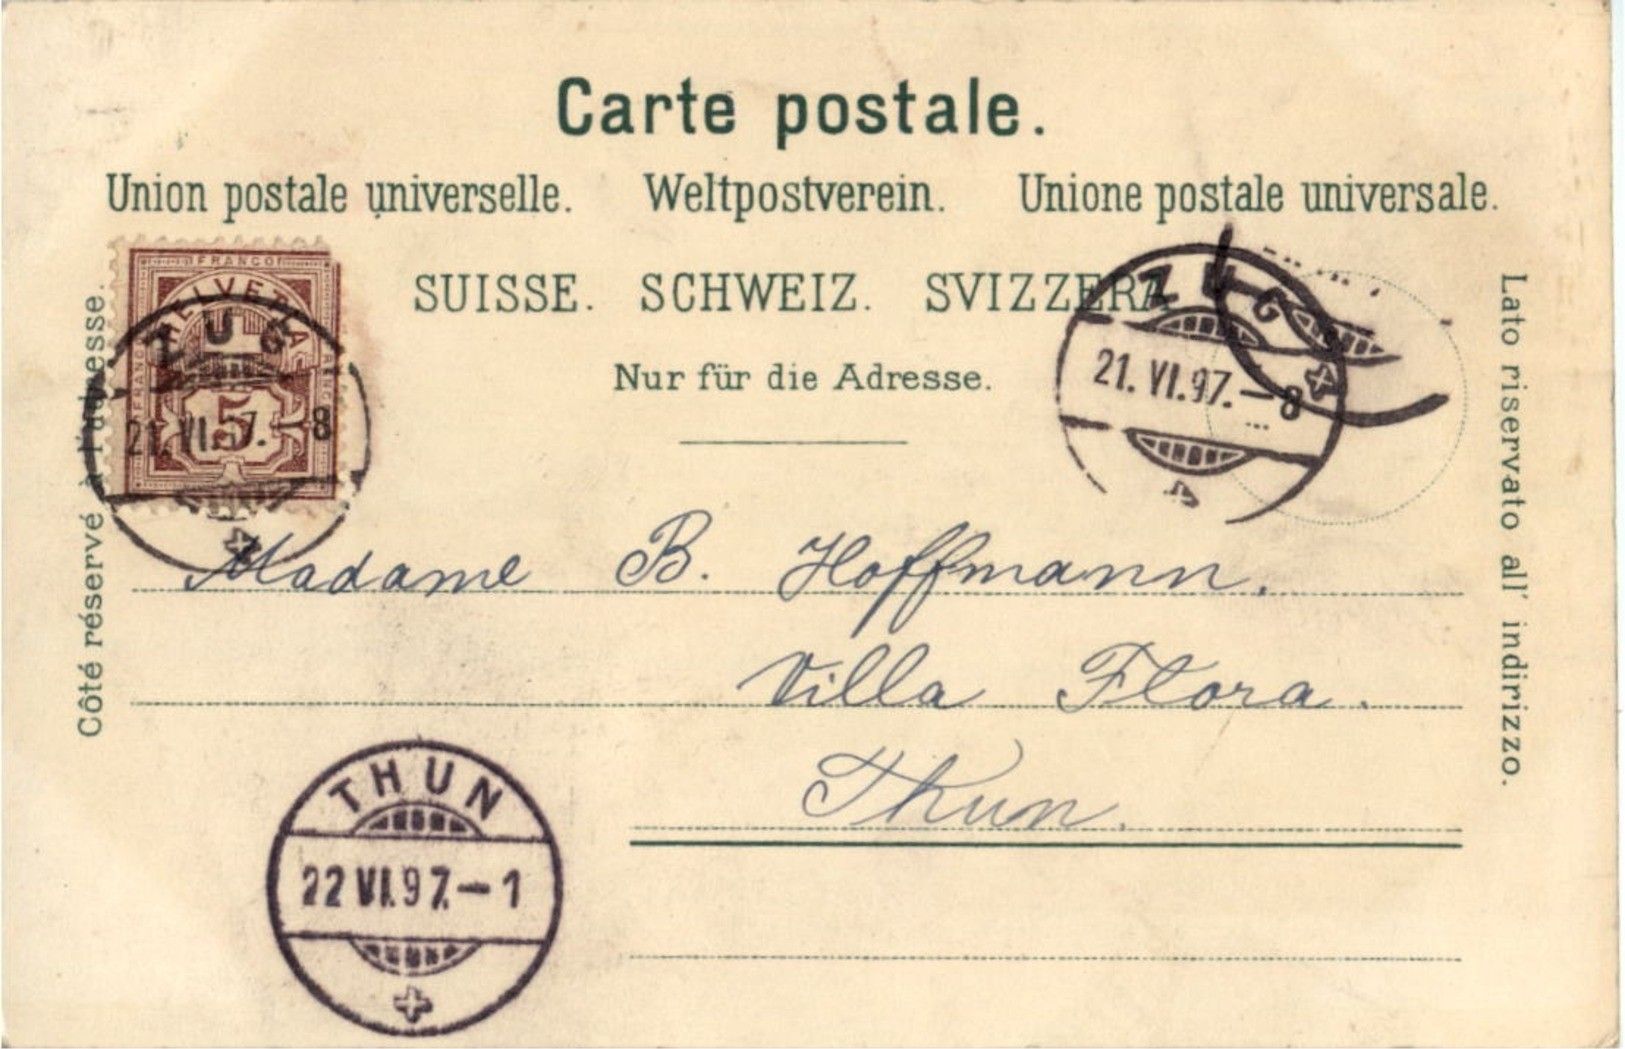 Carte postale.
Union postale universelle. Weltpostverein. Unione postale universale.
SUISSE. SCHWEIZ. SVIZZERA
Nur für die Adresse.
Côté réservé à l'adresse.
Lato riservato all' indirizzo.
FRANCO
HELVETIA
FRANCO
FRANCO
5
ZUG
21. VI. 97. – 8
ZUG
21. VI. 97. – 8
Madame B. Hoffmann.
Villa Flora.
Thun.
THUN
22 VI. 97. – 1